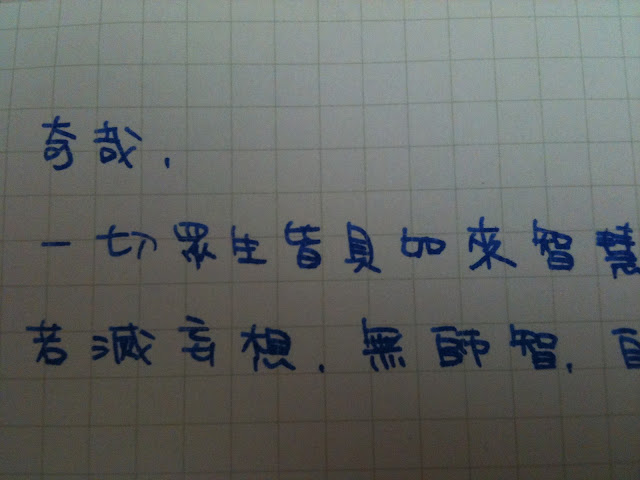 奇哉.
一切眾生皆具如來智慧
若滅妄想.無師智.自